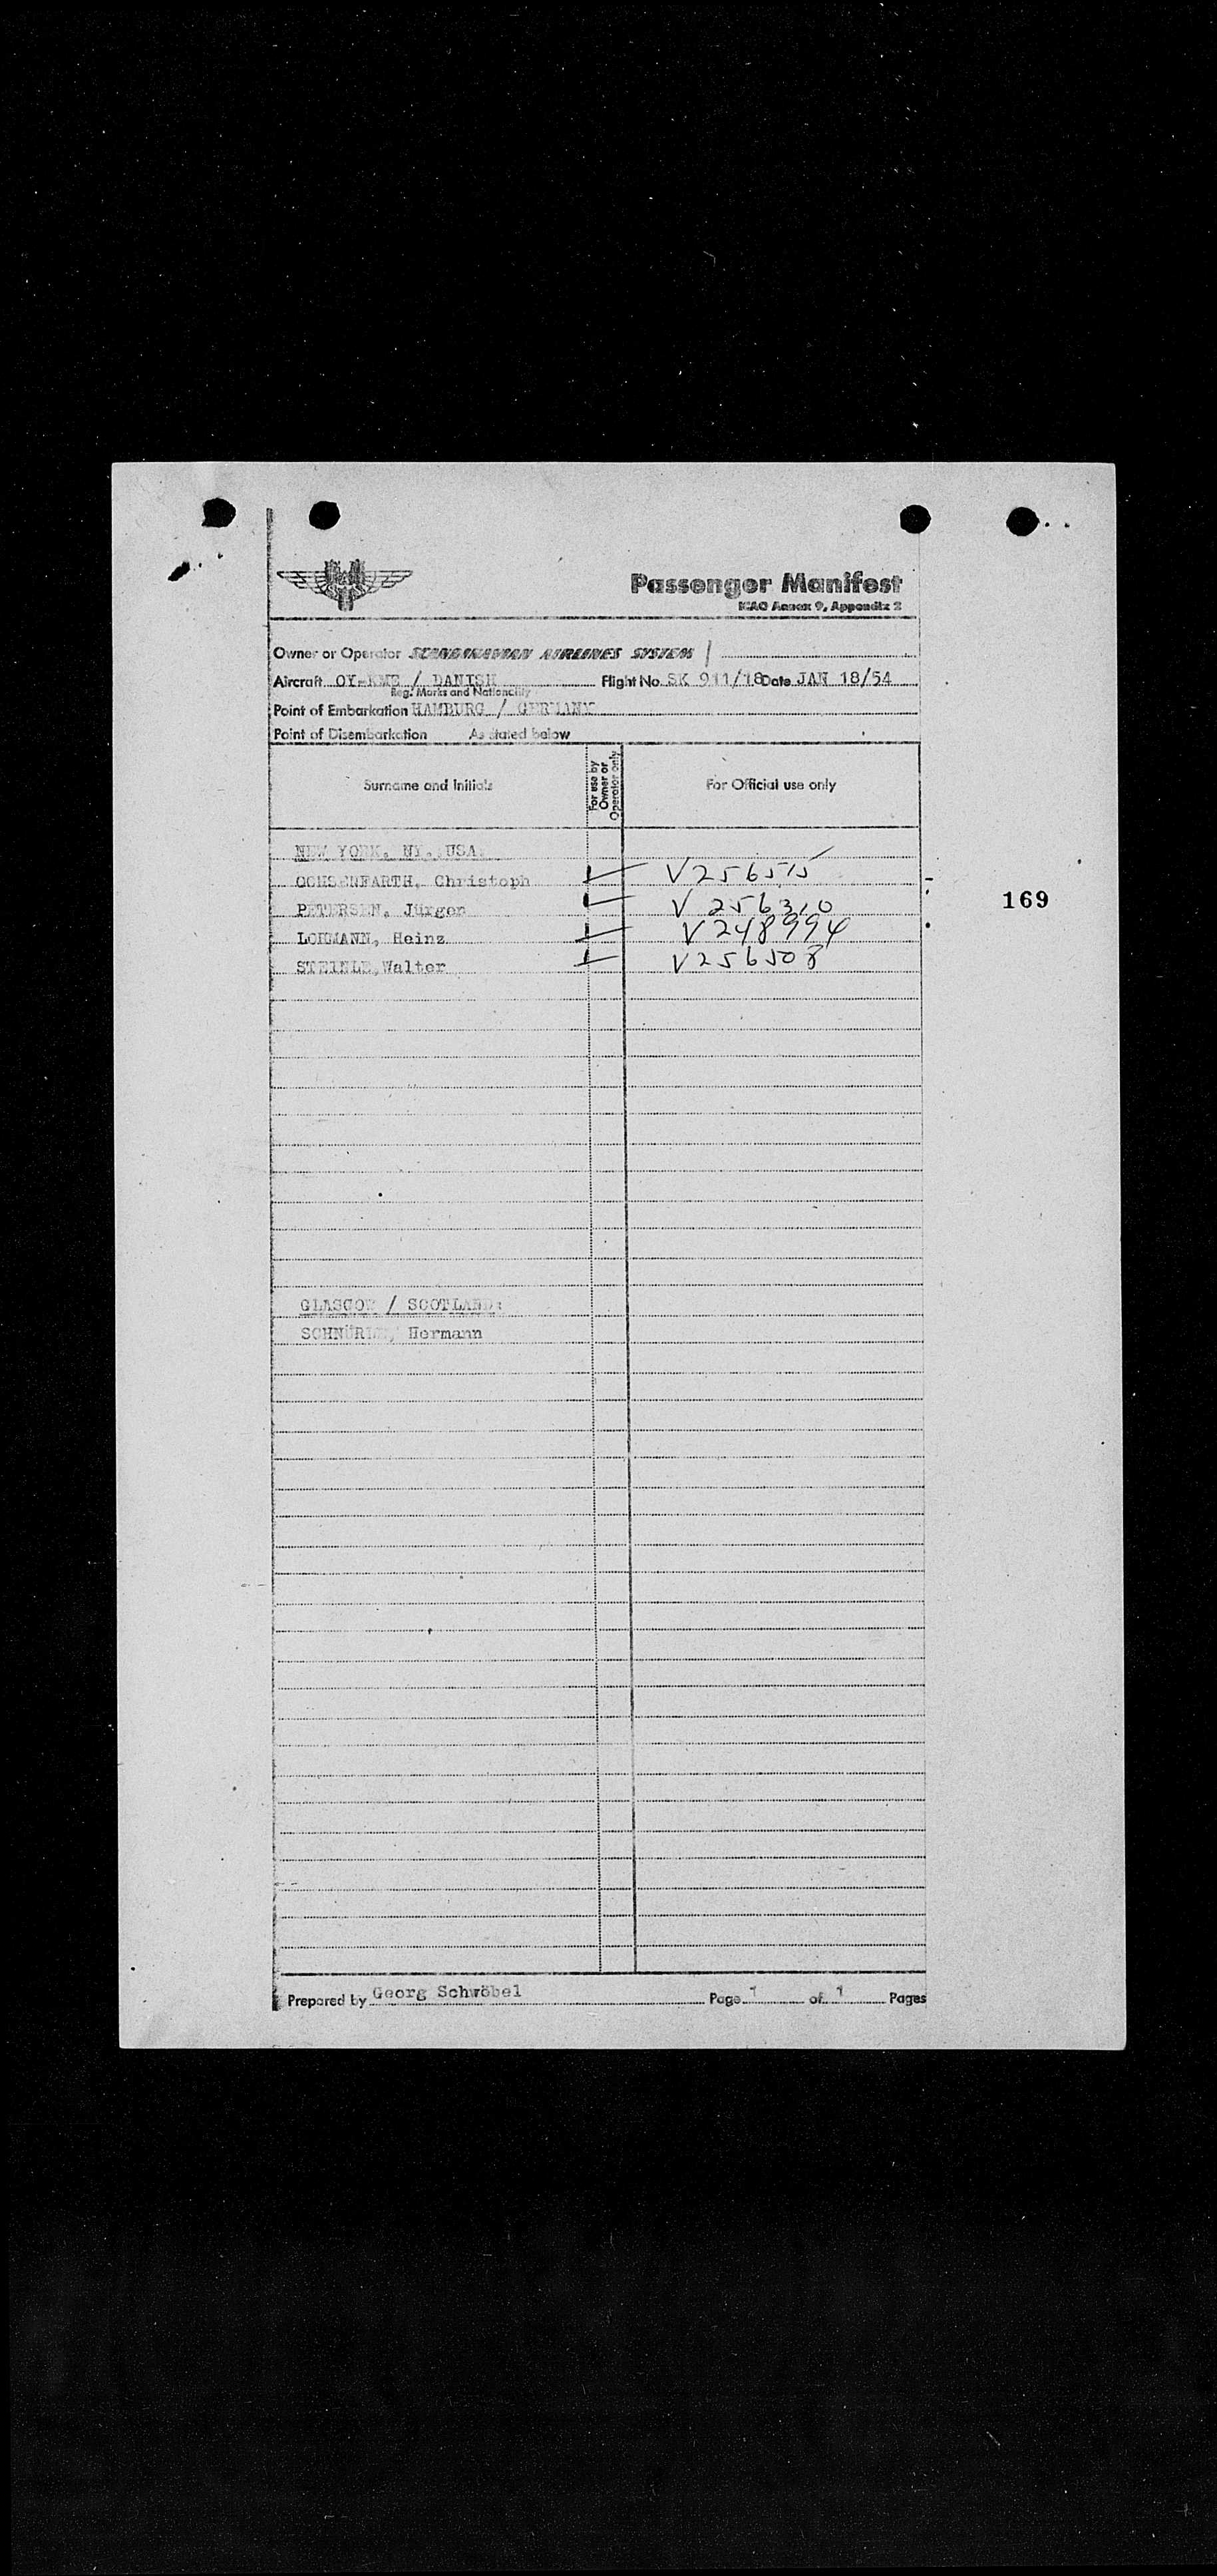 Passenger Manifest
ICAO Annex 9, Appendix 2
Owner or Operator SCANDINAVIAN AIRLINES SYSTEM
Aircraft OY-KME / DANISH Flight No. SK 911/18 Date JAN 18/54
Reg. Marks and Nationality
Point of Embarkation HAMBURG / GERMANY
Point of Disembarkation As stated below
Surname and Initials For use by Owner or Operator only For Official use only
NEW YORK, NY., USA.
OCHSENFARTH, Christoph V256515
PETERSEN, Jürgen V 256310
169
LOHMANN, Heinz V248994
STEINLE, Walter V256508
GLASGOW / SCOTLAND:
Hermann
Prepared by Georg Schwöbel Page 1 of 1 Pages